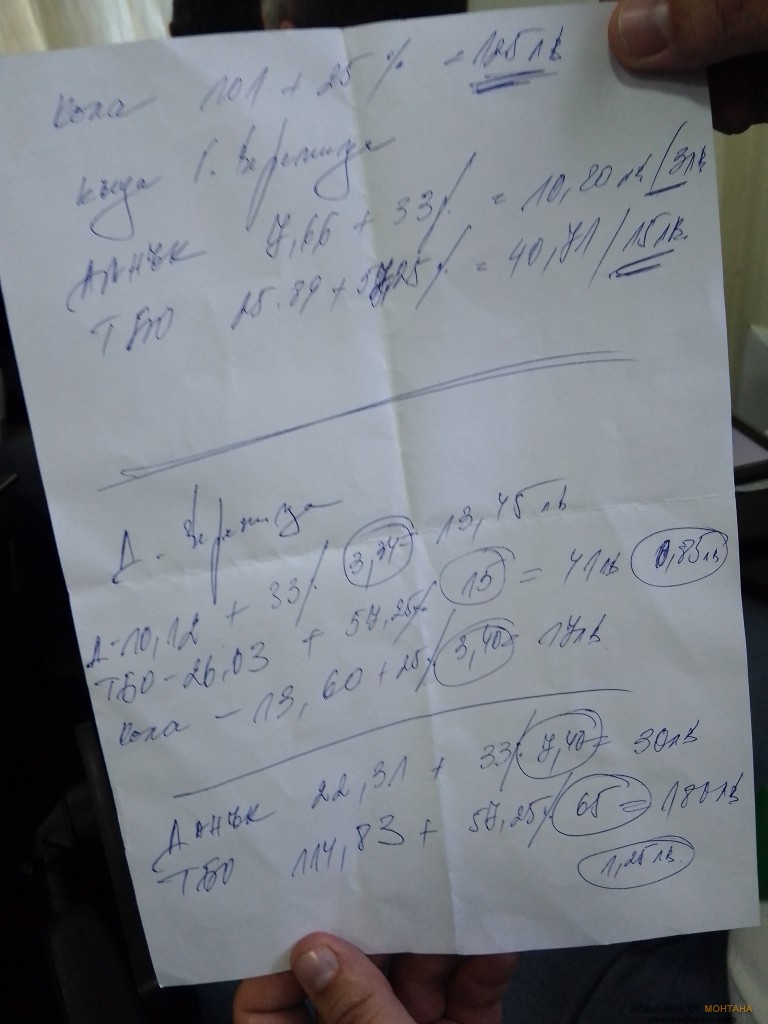 Кола 101 + 25 % = 125 лв
къща Г. Вереница
ДАНЪК 7,66 + 33% = 10,20 лв / 3лв
ТБО 25.89 + 57,25% = 40,71 / 15лв.
Д. Вереница
Д-10,12 + 33% 3,34 = 13,45 лв
ТБО - 26,03 + 57,25% 15 = 41лв 0,85лв
Кола - 13,60 + 25% 3,40 = 17лв
ДАНЪК 22,31 + 33% 7,40 = 30лв
ТБО 114,83 + 57,25% 65 = 180лв
1,25лв.
МОНТАНА